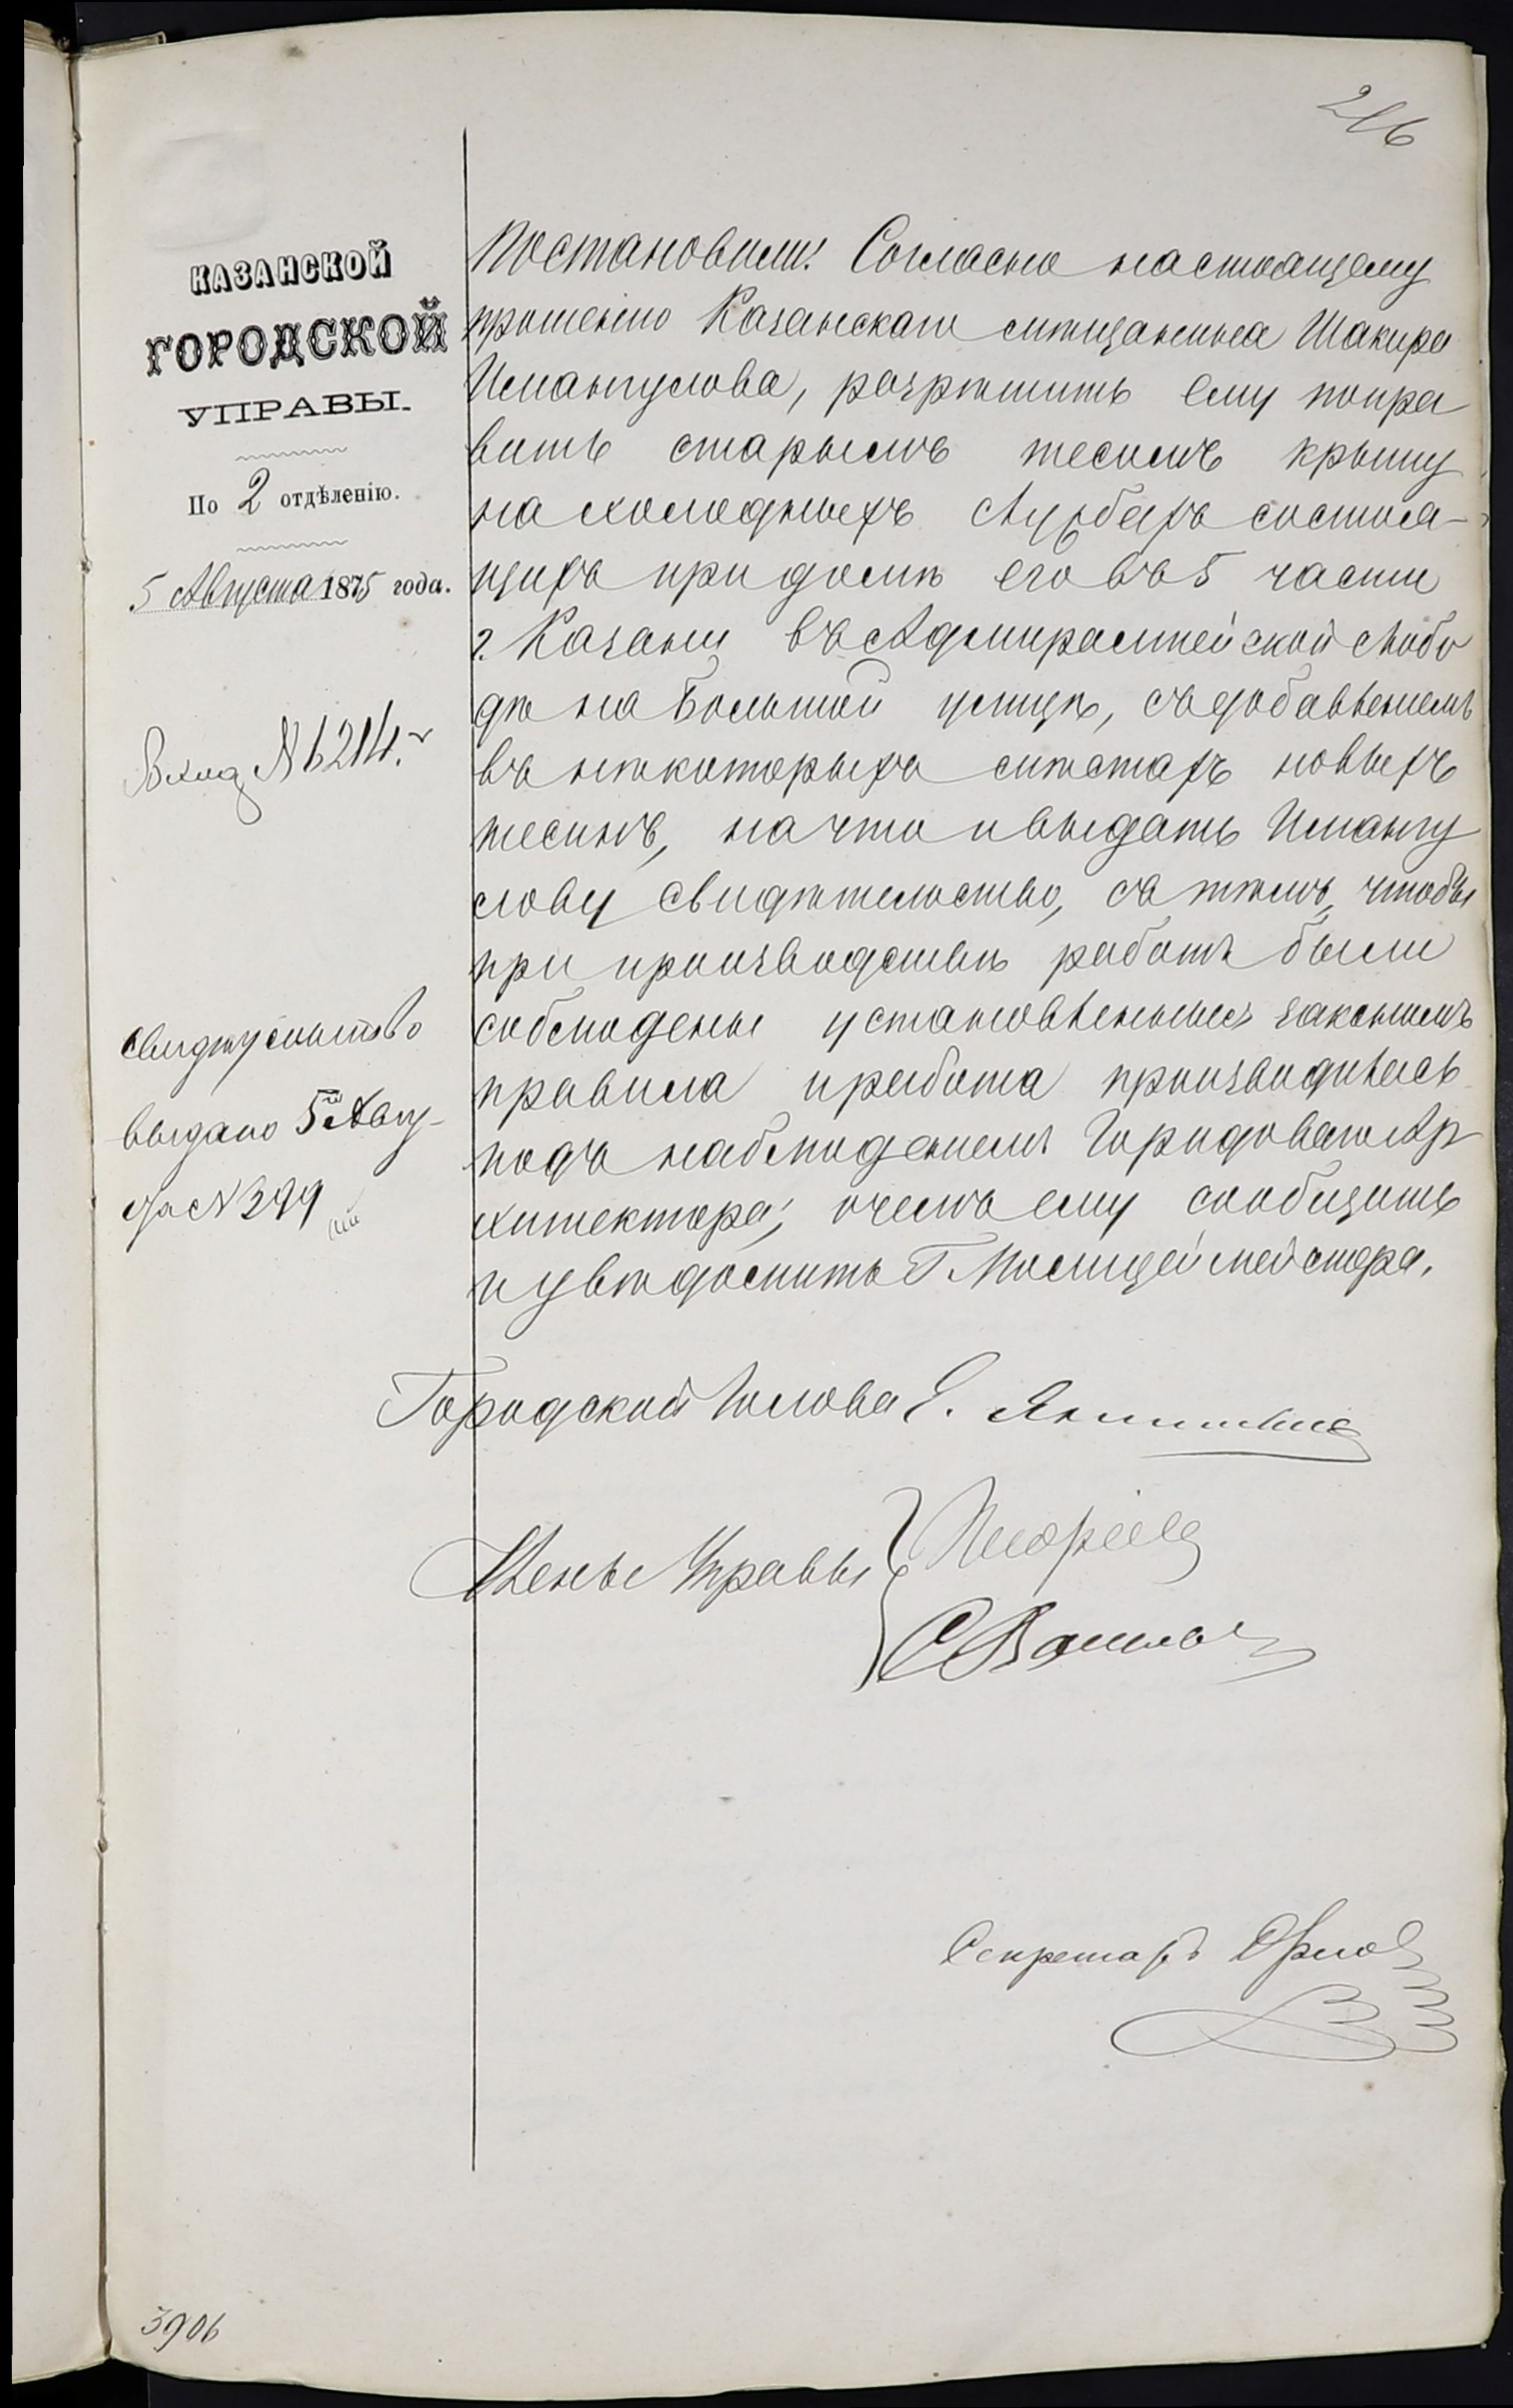 216
КАЗАНСКОЙ
ГОРОДСКОЙ
УПРАВЫ.
По 2 отдѣленію.
5 Августа 1875 года.
Вход № 6214.
Свидѣтельство
выдано 5го Авгу-
ста № 399
Постановили: Согласно настоящему
прошенію Казанскаго мѣщанина Шакира
Исмангулова, разрѣшить ему попра
вить старымъ тесомъ крышу
на холодныхъ службахъ состоя-
щихъ при домѣ его въ 5 части
г. Казани въ Адмиралтейской слобо
дѣ на Большой улицѣ, съ добавленіемъ
въ нѣкоторыхъ мѣстахъ новыхъ
тесинъ, на что и выдать Исмангу
лову свидѣтельство, съ тѣмъ, чтобы
при производствѣ работъ были
соблюдены установленныя закономъ
правила и работа производилась
подъ наблюденіемъ Городоваго Ар
хитектора, о чемъ ему сообщить
и увѣдомить Г. Полицеймейстера.
Городской Голова Е.
Члены Управы
Секретарь Орлов
3906